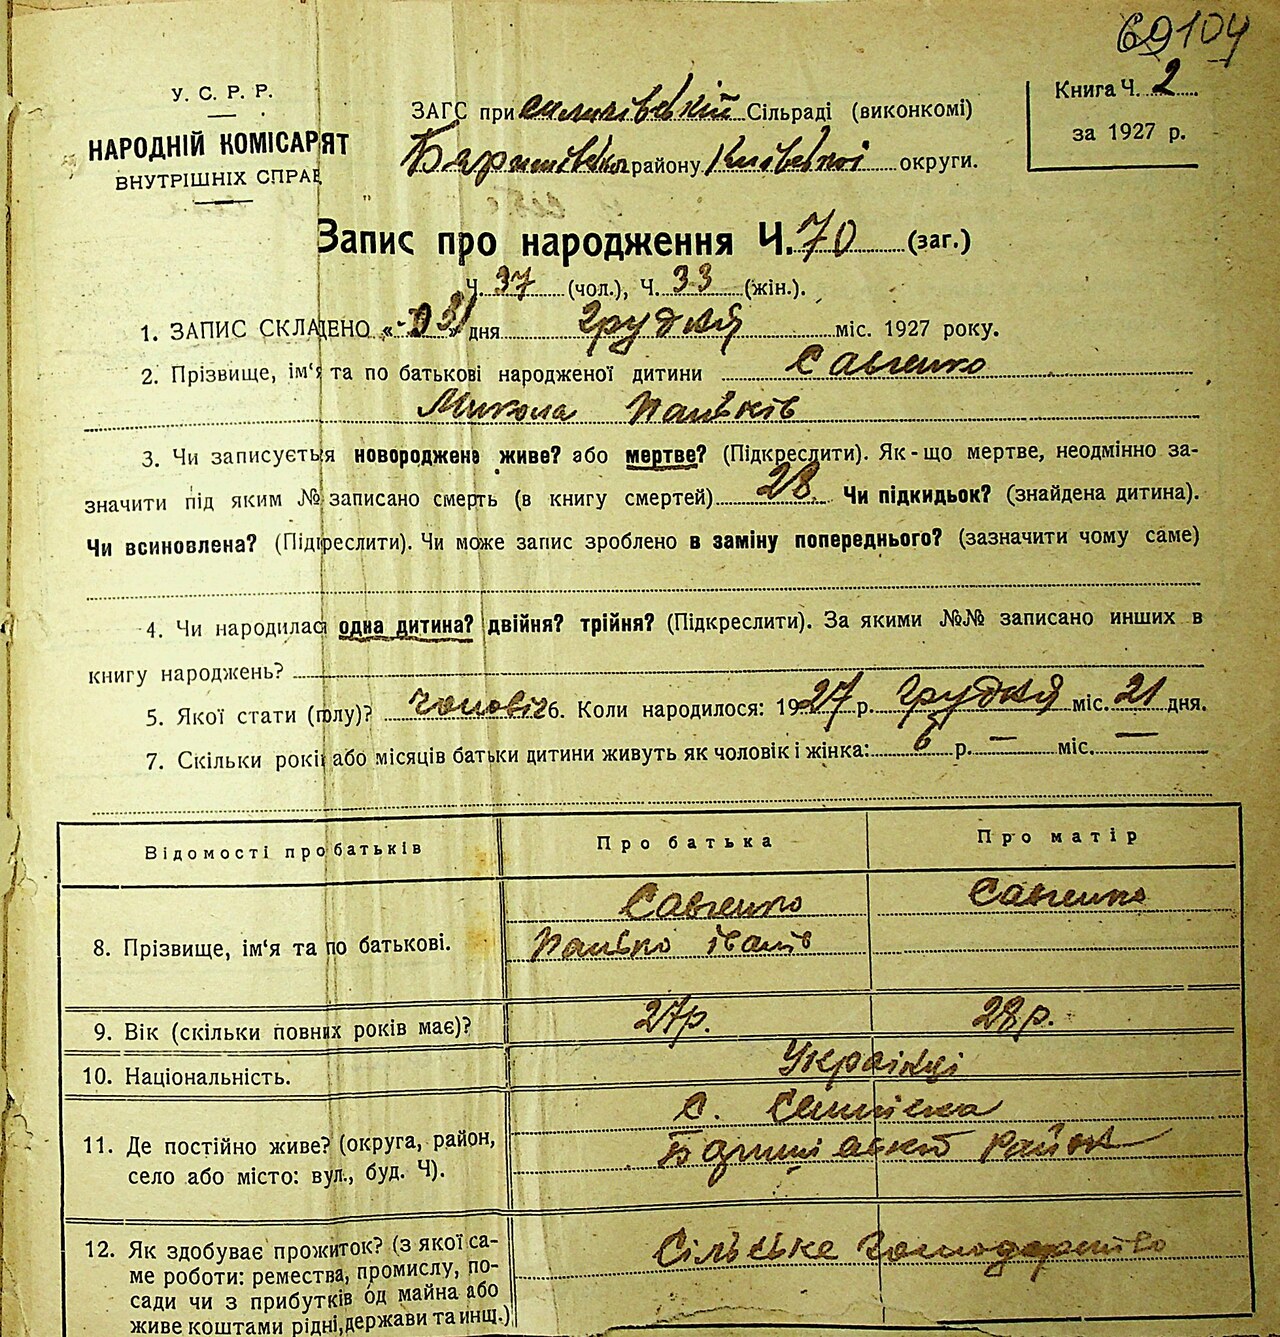 69104
У. С. Р. Р.
НАРОДНІЙ КОМІСАРЯТ
ВНУТРІШНІХ СПРАВ
ЗАГС при Сільраді (виконкомі)
району Київської округи.
Книга Ч. 2
за 1927 р.
Запис про народження Ч. 70 (заг.)
Ч. 37 (чол.), Ч. 33 (жін.).
1. ЗАПИС СКЛАДЕНО « 31 » дня грудня міс. 1927 року.
2. Прізвище, ім'я та по батькові народженої дитини Савченко
Микола Паньків
3. Чи записується новороджене живе? або мертве? (Підкреслити). Як-що мертве, неодмінно за-
значити під яким № записано смерть (в книгу смертей) 28 Чи підкидьок? (знайдена дитина).
Чи всиновлена? (Підкреслити). Чи може запис зроблено в заміну попереднього? (зазначити чому саме)
4. Чи народилася одна дитина? двійня? трійня? (Підкреслити). За якими №№ записано инших в
книгу народжень?
5. Якої стати (полу)? чоловіч 6. Коли народилося: 1927 р. грудня міс. 21 дня.
7. Скільки років або місяців батьки дитини живуть як чоловік і жінка: 6 р. — міс. —
Відомості про батьків Про батька Про матір
8. Прізвище, ім'я та по батькові. Савченко Савченко
Панько Іванів
9. Вік (скільки повних років має)? 27р. 28р.
10. Національність. Українці
11. Де постійно живе? (округа, район,
село або місто: вул., буд. Ч).
с.
район
12. Як здобуває прожиток? (з якої са-
ме роботи: ремества, промислу, по-
сади чи з прибутків од майна або
живе коштами рідні, держави та инщ.)
Сільське господарство